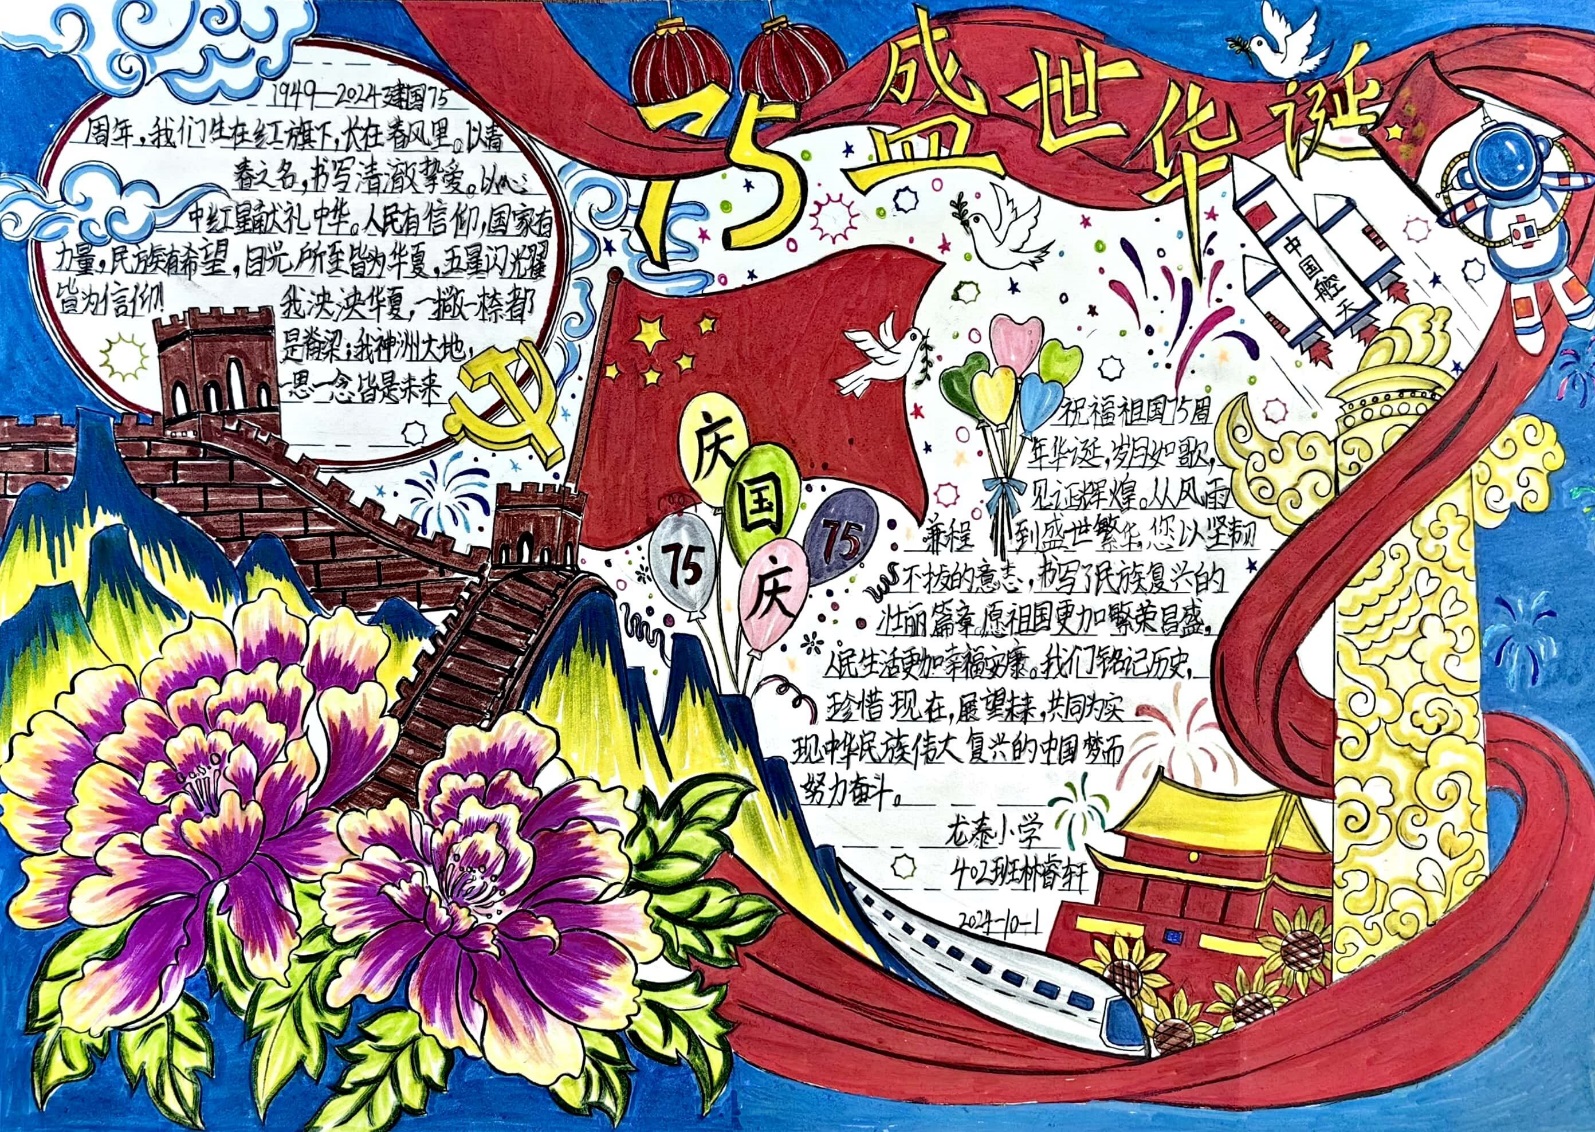 75盛世华诞
1949—2024建国75
周年,我们生在红旗下,长在春风里。以青
春之名,书写清澈挚爱。以心
中红星献礼中华。人民有信仰,国家有
力量,民族有希望,目光所至皆为华夏,五星闪耀
皆为信仰!
我泱泱华夏,一撇一捺都
是脊梁;我神洲大地,
一思一念皆是未来
中国航天
庆
国
庆
75
75
祝福祖国75周
年华诞,岁月如歌,
见证辉煌。从风雨
兼程 到盛世繁华,您以坚韧
不拔的意志,书写了民族复兴的
壮丽篇章。愿祖国更加繁荣昌盛,
人民生活更加幸福安康。我们铭记历史,
珍惜现在,展望未来,共同为实
现中华民族伟大复兴的中国梦而
努力奋斗。
龙泰小学
402班林睿轩
2024-10-1